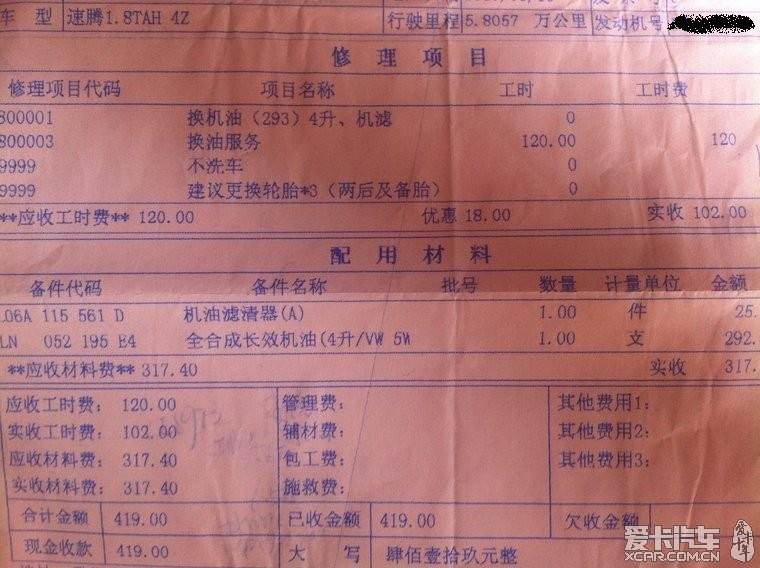 车 型 速腾1.8TAH 4Z 行驶里程 5.8057 万公里 发动机号
修 理 项 目
修理项目代码 项目名称 工时 工时费
800001 换机油（293）4升、机滤 0
800003 换油服务 120.00 120
9999 不洗车 0
9999 建议更换轮胎*3（两后及备胎） 0
**应收工时费** 120.00 优惠 18.00 实收 102.00
配 用 材 料
备件代码 备件名称 批号 数量 计量单位 金额
06A 115 561 D 机油滤清器(A) 1.00 件 25.
LN 052 195 E4 全合成长效机油(4升/VW 5W 1.00 支 292.
**应收材料费** 317.40 实收 317.
应收工时费: 120.00 管理费: 其他费用1:
实收工时费: 102.00 辅材费: 其他费用2:
应收材料费: 317.40 包工费: 其他费用3:
实收材料费: 317.40 施救费:
合计金额 419.00 已收金额 419.00 欠收金额
现金收款 419.00 大 写 肆佰壹拾玖元整
爱卡汽车
XCAR.COM.CN